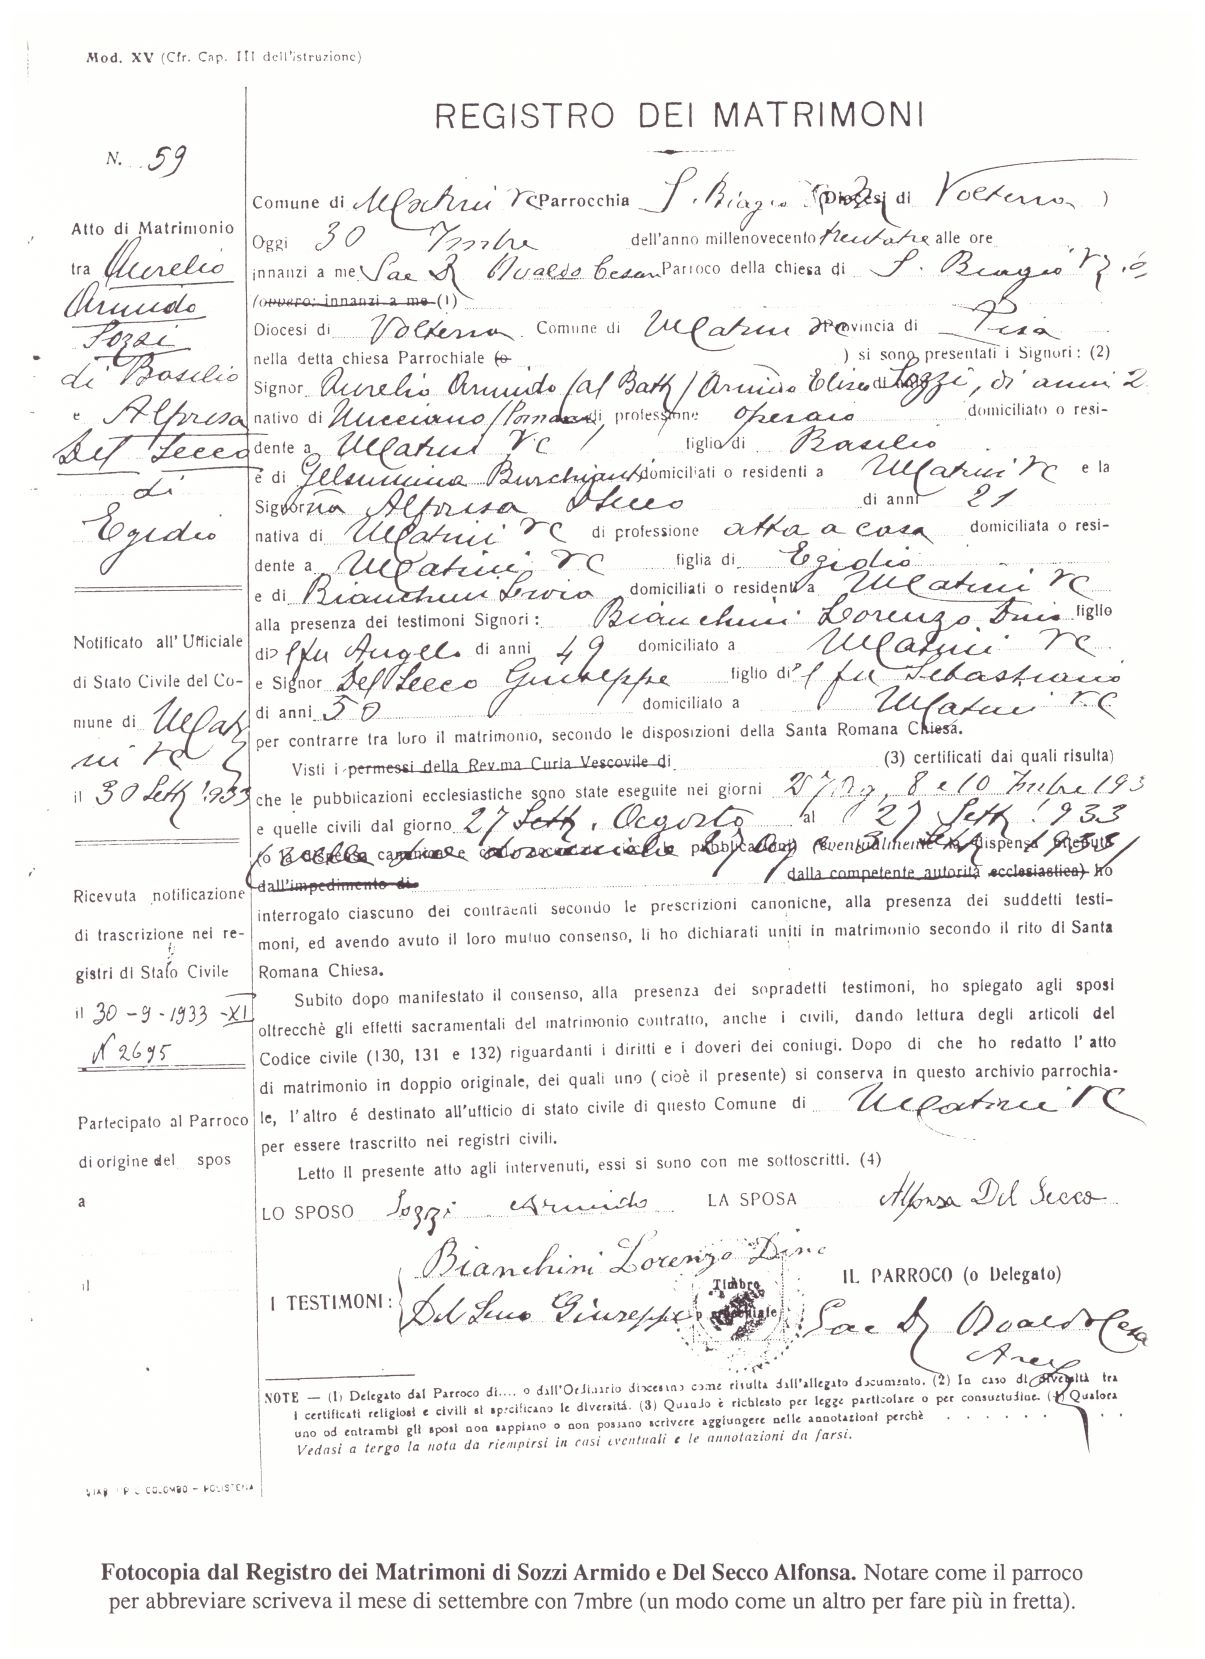 Mod. XV (Cfr. Cap. III dell'istruzione)
REGISTRO DEI MATRIMONI
N. 59
Atto di Matrimonio
tra Aurelio
Armido
Sozzi
di Basilio
e Alfonsa
Del Secco
di
Egidio
Notificato all' Ufficiale
di Stato Civile del Co-
mune di
il 30 Sett. 1933
Ricevuta notificazione
di trascrizione nei re-
gistri di Stato Civile
il 30-9-1933-XI
N 2695
Partecipato al Parroco
di origine del spos
a
il
Comune di Parrocchia S. Biagio Diocesi di Volterra )
Oggi 30 7mbre dell'anno millenovecento trentatre alle ore
innanzi a me Sac Parroco della chiesa di S. Biagio
(ovvero: innanzi a me (1)
Diocesi di Volterra Comune di Provincia di Pisa
nella detta chiesa Parrochiale (o ) si sono presentati i Signori: (2)
Signor Aurelio Armido (al Batt/ Armido Eliseo Sozzi, di anni 2
nativo di di professione operaio domiciliato o resi-
dente a figlio di Basilio
e di Gelsumina domiciliati o residenti a e la
Signorina Alfonsa D Secco di anni 21
nativa di di professione atta a casa domiciliata o resi-
dente a figlia di Egidio
e di Bianchini domiciliati o residenti a
alla presenza dei testimoni Signori: Bianchini Lorenzo Dino figlio
di fu Angelo di anni 49 domiciliato a
e Signor Del Secco Giuseppe figlio di fu Sebastiano
di anni 50 domiciliato a
per contrarre tra loro il matrimonio, secondo le disposizioni della Santa Romana Chiesa.
Visti i permessi della Rev.ma Curia Vescovile di (3) certificati dai quali risulta)
che le pubblicazioni ecclesiastiche sono state eseguite nei giorni 27 Ag, 8 e 10 7mbre 193
e quelle civili dal giorno 27 Sett. Agosto al 27 Sett. 1933
dall'impedimento di dalla competente autorità ecclesiastica) ho
interrogato ciascuno dei contraenti secondo le prescrizioni canoniche, alla presenza dei suddetti testi-
moni, ed avendo avuto il loro mutuo consenso, li ho dichiarati uniti in matrimonio secondo il rito di Santa
Romana Chiesa.
Subito dopo manifestato il consenso, alla presenza dei sopradetti testimoni, ho spiegato agli sposi
oltrecchè gli effetti sacramentali del matrimonio contratto, anche i civili, dando lettura degli articoli del
Codice civile (130, 131 e 132) riguardanti i diritti e i doveri dei coniugi. Dopo di che ho redatto l' atto
di matrimonio in doppio originale, dei quali uno (cioè il presente) si conserva in questo archivio parrochia-
le, l'altro é destinato all'ufficio di stato civile di questo Comune di
per essere trascritto nei registri civili.
Letto il presente atto agli intervenuti, essi si sono con me sottoscritti. (4)
LO SPOSO Sozzi Armido LA SPOSA Alfonsa Del Secco
Bianchini Lorenzo Dino
I TESTIMONI: Del Secco Giuseppe
Timbro
IL PARROCO (o Delegato)
Sac
NOTE — (1) Delegato dal Parroco di.... o dall'Ordinario diocesano come risulta dall'allegato documento. (2) In caso di diversità tra
i certificati religiosi e civili si specificano le diversità. (3) Quando è richiesto per legge particolare o per consuetudine. (4) Qualora
uno od entrambi gli sposi non sappiano o non possano scrivere aggiungere nelle annotazioni perchè . . . . . . . .
Vedasi a tergo la nota da riempirsi in casi eventuali e le annotazioni da farsi.
COLOMBO - POLISTENA
Fotocopia dal Registro dei Matrimoni di Sozzi Armido e Del Secco Alfonsa. Notare come il parroco
per abbreviare scriveva il mese di settembre con 7mbre (un modo come un altro per fare più in fretta).